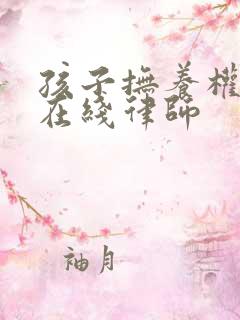 孩子撫養權
在綫律師
袖月